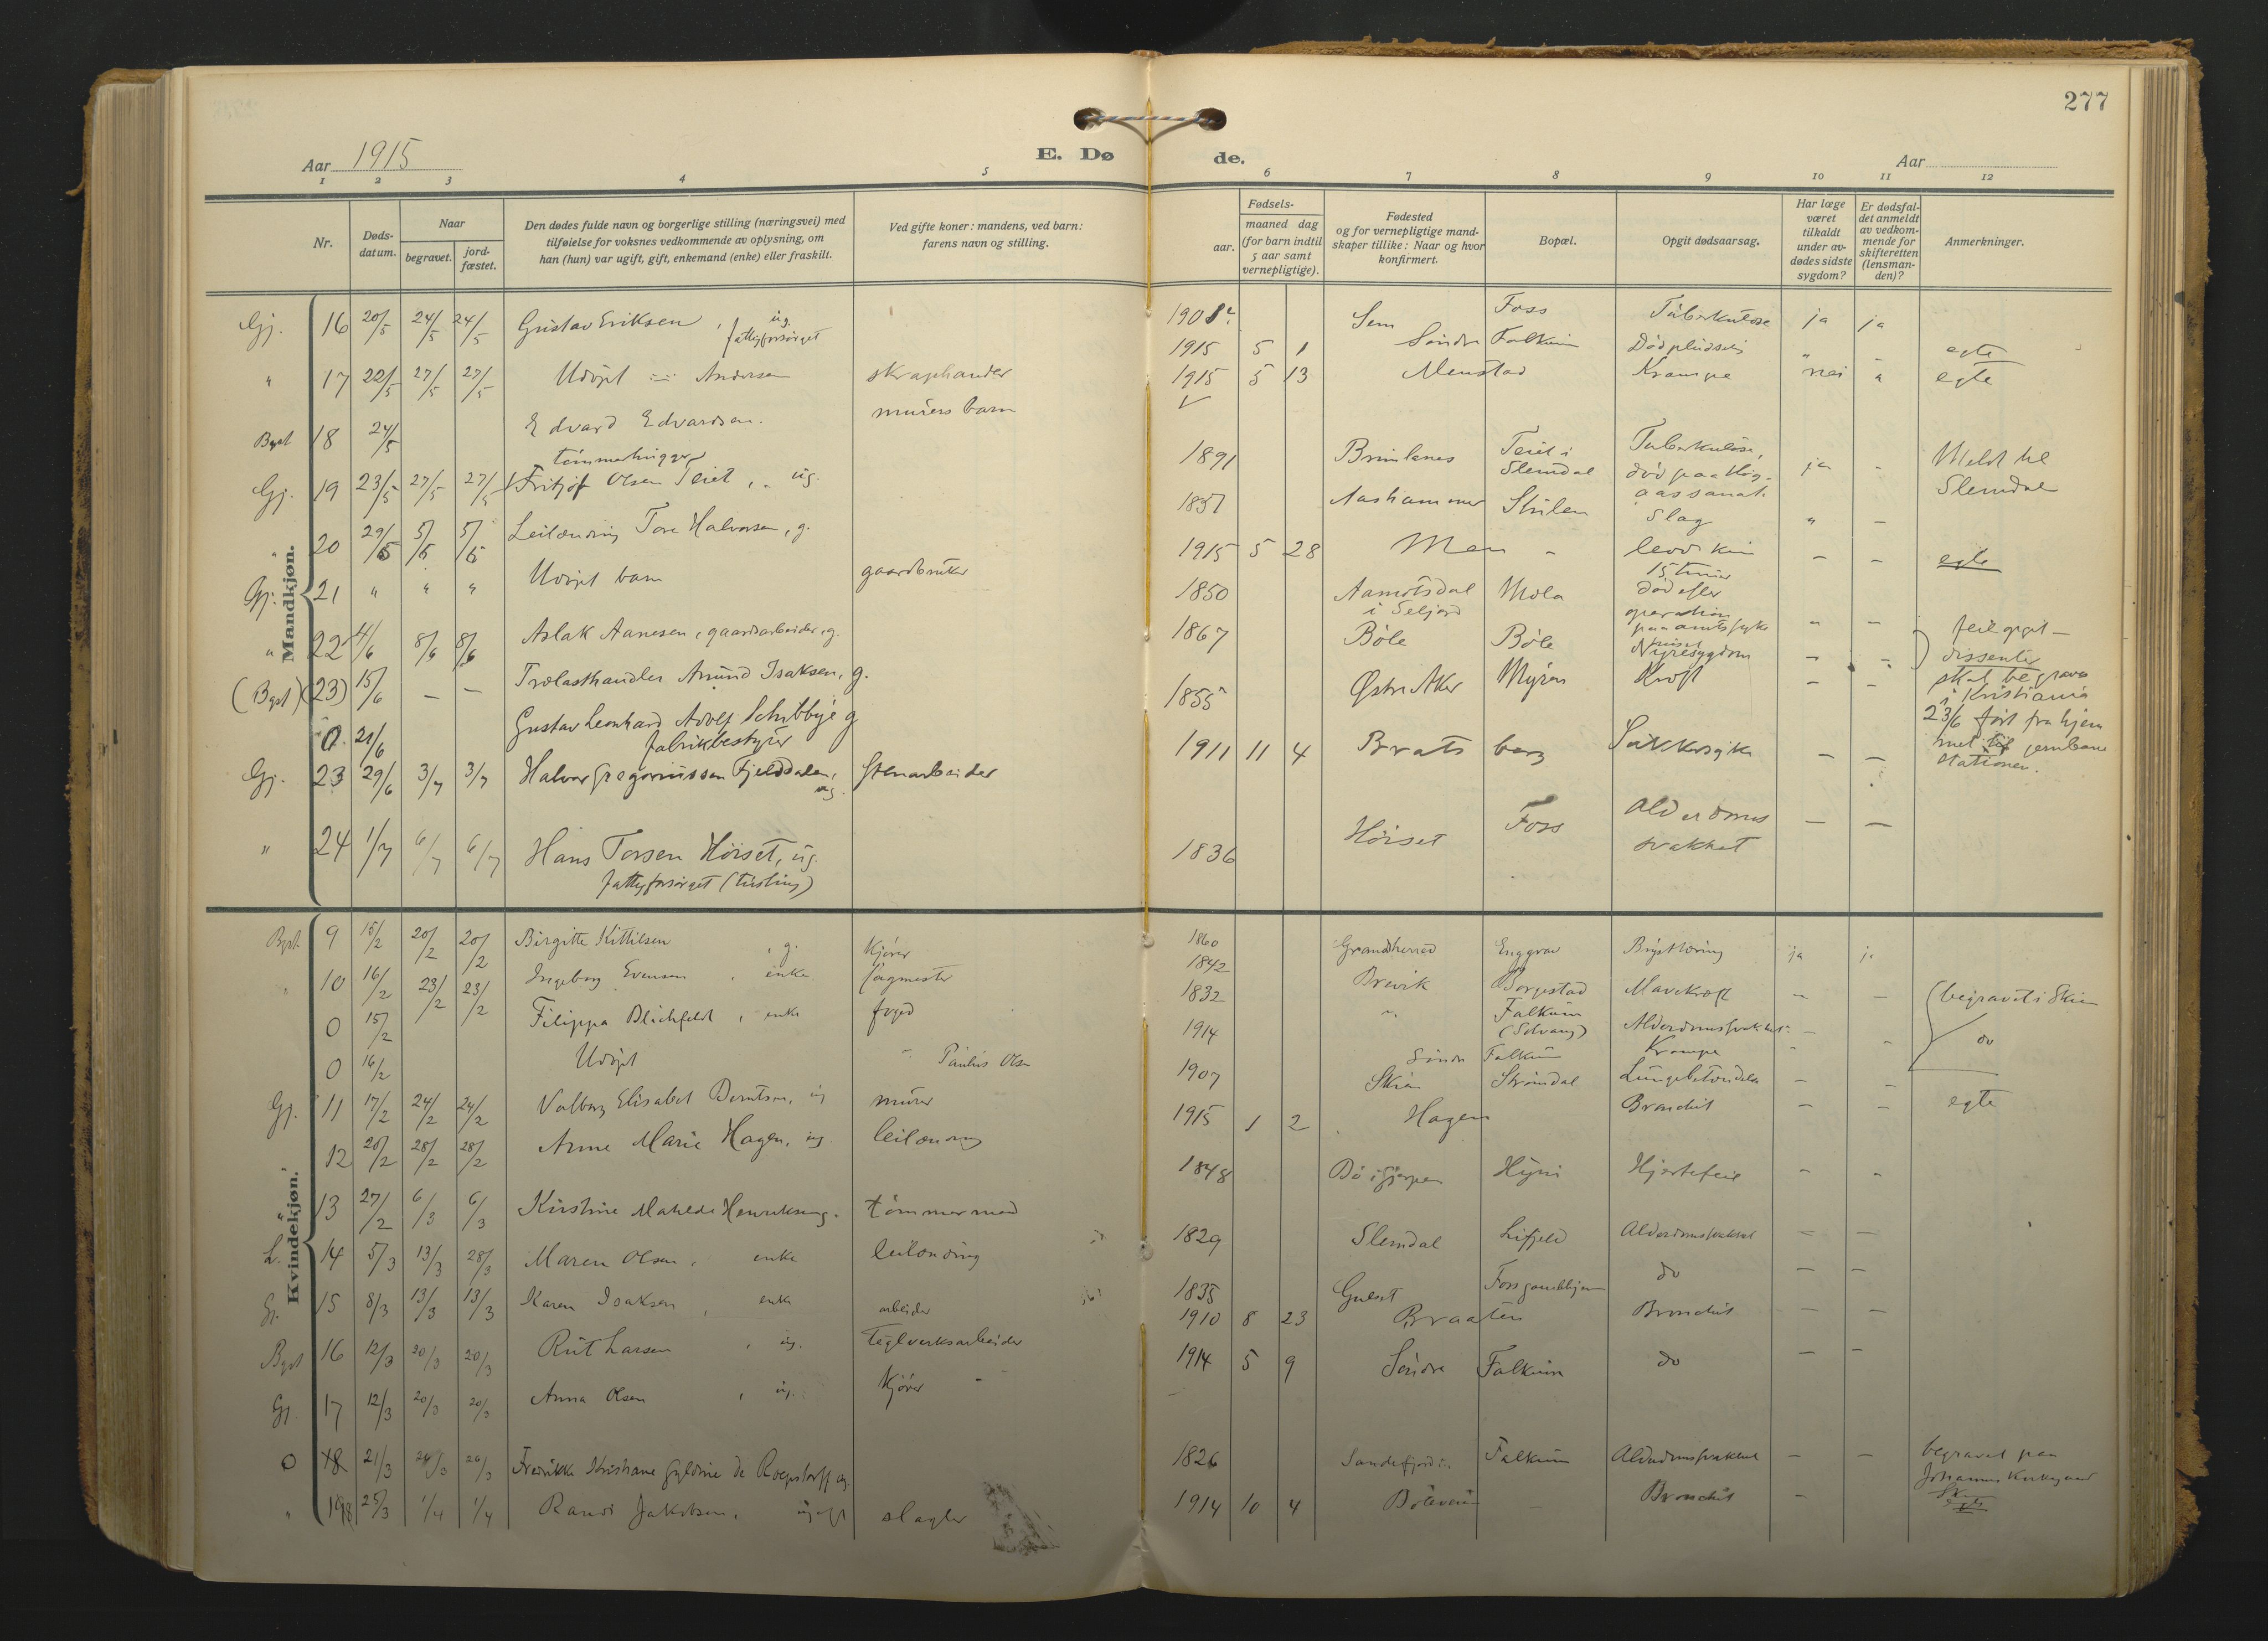 277
Aar 1915
E. Dø de.
Aar
1 2 3 4 5 6 7 8 9 10 11 12
Nr.
Døds-
datum.
Naar
begravet.
jord-
fæstet.
Den dødes fulde navn og borgerlige stilling (næringsvei) med
tilføielse for voksnes vedkommende av oplysning, om
han (hun) var ugift, gift, enkemand (enke) eller fraskilt.
Ved gifte koner: mandens, ved barn:
farens navn og stilling.
Fødsels-
aar.
maaned dag
(for barn indtil
5 aar samt
vernepligtige).
Fødested
og for vernepligtige mand-
skaper tillike: Naar og hvor
konfirmert.
Bopæl.
Opgit dødsaarsag.
Har læge
været
tilkaldt
under av-
dødes sidste
sygdom?
Er dødsfal-
det anmeldt
av vedkom-
mende for
skifteretten
(lensman-
den)?
Anmerkninger.
Mandkjøn.
Gj. 16 20/5 24/5 24/5 Gustav Eriksen, ug. fattigforsørget Sem Foss Tuberkulose ja ja
" 17 22/5 27/5 27/5 Udøpt Andersen skraphandler 1915 5 1 Søndre Falkum Død pludselig " " egte
Bgst 18 24/5 Edvard Edvardsen. murers barn 1915 5 13 Menstad Krampe nei " egte
Gj. 19 23/5 27/5 27/5 tømmerhugger Fritjof Olsen Teiet, ug. 1891 Brunlanes Teiet i Slemdal Tuberkulose, ja - Meldt til Slemdal
" 20 29/5 5/6 5/6 Leilænding Tore Halvorsen, g. 1837 Aashammer Stulen Slag " -
Gj. 21 " " " Udøpt barn gaardbruker 1915 5 28 Men - levd kun 15 timer - - egte
" 22 4/6 8/6 8/6 Aslak Aanesen, gaardsarbeider, g. 1850 Aamotsdal i Seljord Mæla død efter operation paa amtssyk - -
(Bgst) (23) 15/6 - - Trælasthandler Amund Isaksen, g. 1867 Bøle Bøle Nyresygdom - - feil opgit - dissenter
0. 21/6 Gustav Leonhard Adolf Schibbye g fabrikbestyrer 1855 Østre Aker Myren Kræft - - skal begraves i Kristiania 23/6 ført fra hjem met til jernbane stationen.
Gj. 23 29/6 3/7 3/7 Halvor Gregoriussen Fjelddalen, ug. Stenarbeider 1911 11 4 Brats berg Sukkersyke - -
" 24 1/7 6/7 6/7 Hans Torsen Høiset, ug. fattigforsørget (tusling) 1836 Høiset Foss Alderdoms svakhet - -
Kvindekjøn.
Bgst. 9 15/2 20/2 20/2 Birgitte Kittilsen, g. kjører 1860 Gransherred Enggrav Brysttæring ja ja
" 10 16/2 23/2 23/2 Ingeborg Evensen, enke sagmester 1842 Brevik Borgestad Mavekræft - -
0 15/2 Filippa Blichfeldt, enke foged 1832 " Falkum (Solvang) Alderdomssvakhet - begravet i Skien
0 16/2 Udøpt Paulus Olsen 1914 Søndre Falkum Krampe " - do
Gj. 11 17/2 24/2 24/2 Valborg Elisabet Berntsen, ug murer 1907 Skien Strømdal Lungebetændelse - -
12 20/2 28/2 28/2 Anne Marie Hagen, ug. leilænding 1915 1 2 Hagen Bronchit - - egte
" 13 27/2 6/3 6/3 Kirstine Matilde Henriksen g. tømmermand 1848 Bø i Gjerpen Hyni Hjertefeil - -
L. 14 5/3 13/3 28/3 Maren Olsen, enke leilænding 1829 Slemdal Lifjeld Alderdomssvakhet - -
Gj. 15 8/3 13/3 13/3 Karen Isaksen, enke arbeider 1835 Gulset Foss gamlehjem do - -
Bgst 16 12/3 20/3 20/3 Rut Larsen, ug. teglverksarbeider 1910 8 23 Braaten Bronchit - -
Gj. 17 12/3 20/3 20/3 Anna Olsen, ug. kjører 1914 5 9 Søndre Falkum do - -
0 18 21/3 26/3 26/3 Fredrikke Kristiane Gyldine de Roepstorff ug. 1826 Sandefjord Falkum Alderdomssvakhet - - begravet paa Johannes Kirkegaard Skien
" 19 18 25/3 1/4 1/4 Randi Jakobsen, ugift slagter 1914 10 4 Bøleveien - Bronchit - egte